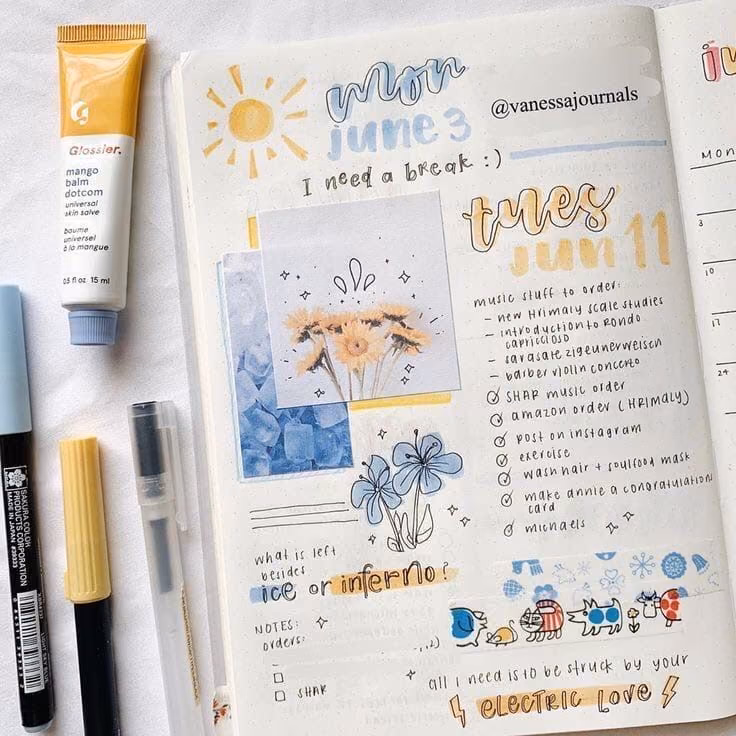 Glossier.
mango
balm
dotcom
universal
skin salve
baume
universel
à la mangue
0.5 fl oz 15 ml
SAKURA COLOR
PRODUCTS CORPORATION
MADE IN JAPAN
mon
june 3
@vanessajournals
I need a break :)
tues
jun 11
music stuff to order:
- new Hrimaly scale studies
- introduction to Rondo
capriccioso
- sarasate zigeunerweisen
- barber violin concerto
SHAR music order
amazon order (HRIMALY)
post on instagram
exercise
wash hair + soulfood mask
make annie a congratulation
card
michaels
what is left
besides
ice or inferno?
NOTES:
orders:
SHAR
all i need is to be struck by your
ELECTRIC LOVE
MON
3
10
17
24